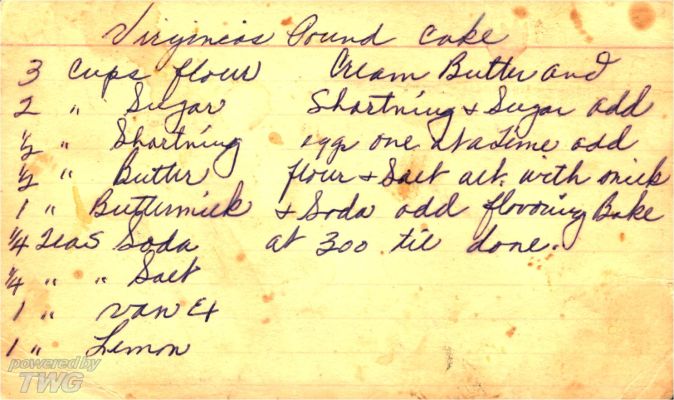 Virginias Pound Cake
3 cups flour
2 " Sugar
1/2 " Shortning
1/2 " Butter
1 " Buttermilk
1/4 teas Soda
1/4 " " Salt
1 " van Ex
1 " Lemon
Cream Butter and
Shortning & Sugar add
eggs one at a time add
flour & Salt alt. with milk
& Soda add flovoring Bake
at 300 til done.
powered by
TWG